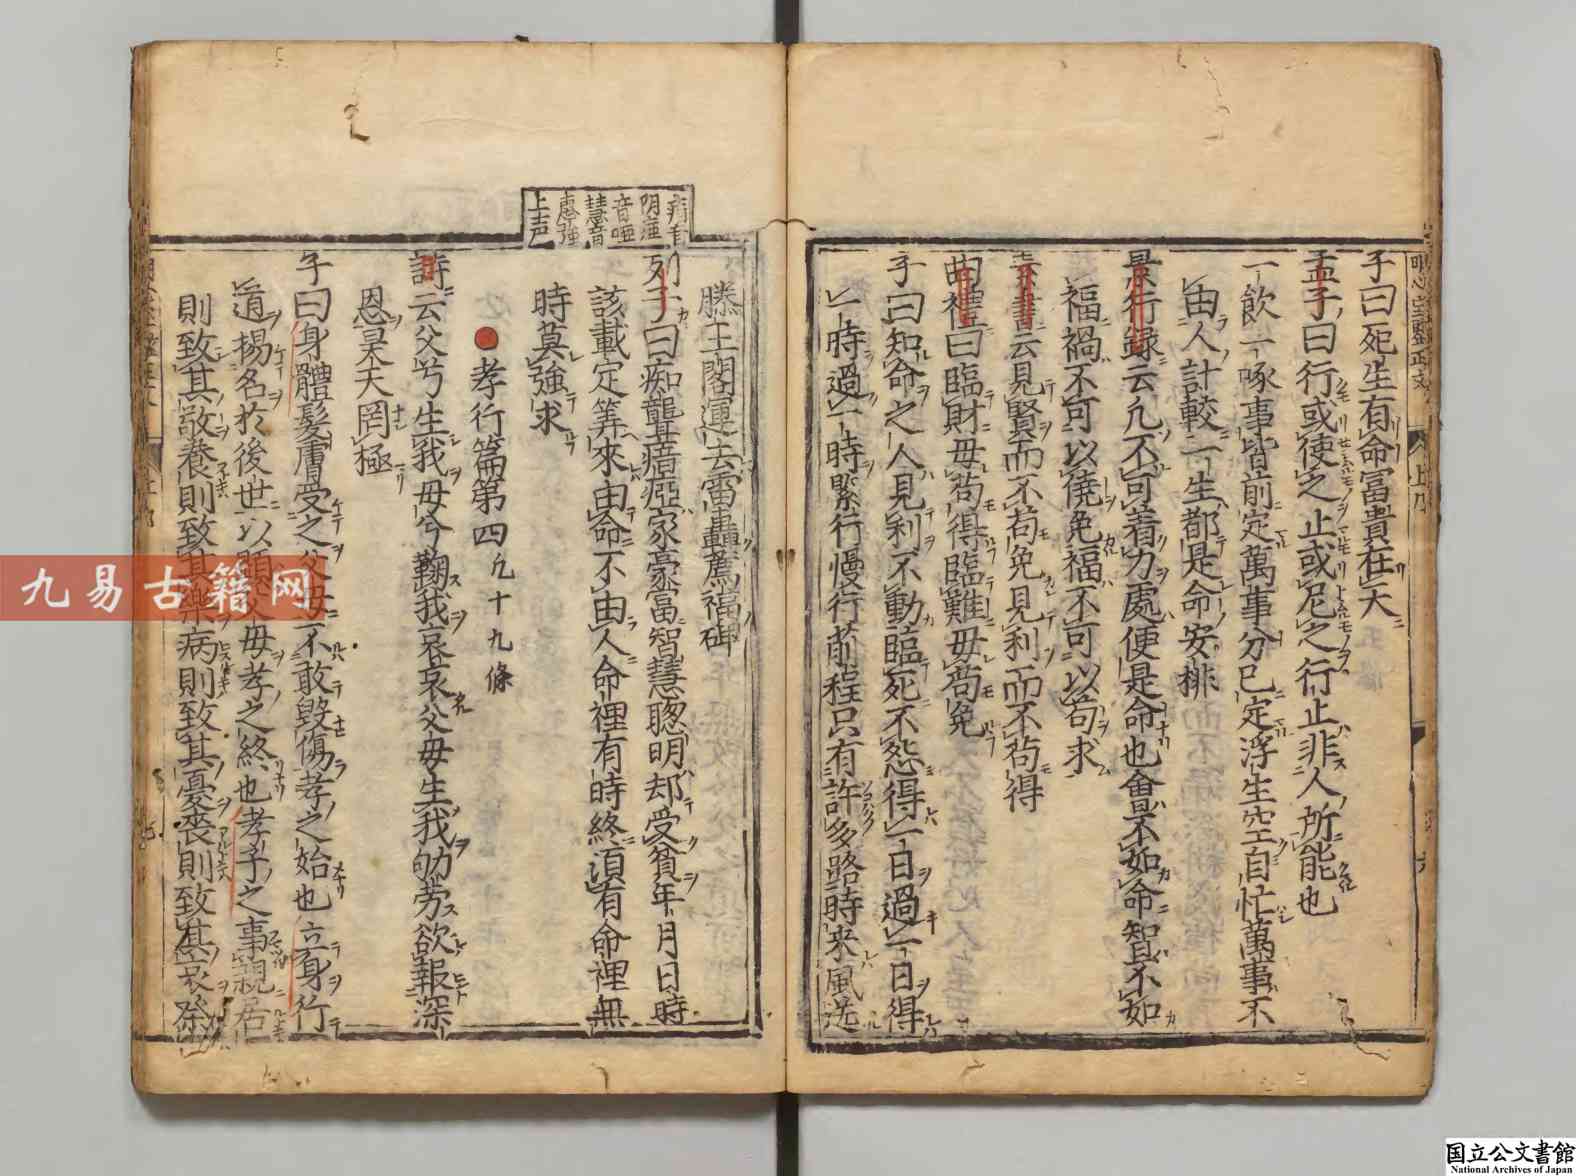 明心宝鑑正文
上
六
子曰死生有命冨貴在天
孟子曰行或使之止或尼之行止非人所能也
一飲一啄事皆前定萬事分已定浮生空自忙萬事不
由人計較一生都是命安排
景行録云凢不可着力處便是命也㑹不如命智不如
福禍不可以僥免福不可以苟求
素書云見賢而不苟免見利而不苟得
曲禮曰臨財毋苟得臨難毋苟免
子曰知命之人見利不動臨死不怨得一日過一日得
一時過一時緊行慢行前程只有許多路時来風送
滕王閣運去雷轟薦福碑
列子曰痴聾瘖瘂家豪富智慧聦明却受貧年月日時
該載定筭來由命不由人命裡有時終須有命裡無
時莫強求
瘖音
隂瘂
音唖
慧音
上声
孝行篇第四凢十九條
詩云父兮生我毋兮鞠我哀哀父毋生我劬劳欲報深
恩昊天罔極
子曰身體髮膚受之父毋不敢毀傷孝之始也立身行
道揚名於後世以顯父毋孝之終也孝子之事親居
則致其敬養則致其樂病則致其憂喪則致其哀祭
九易古籍网
国立公文書館
National Archives of Japan